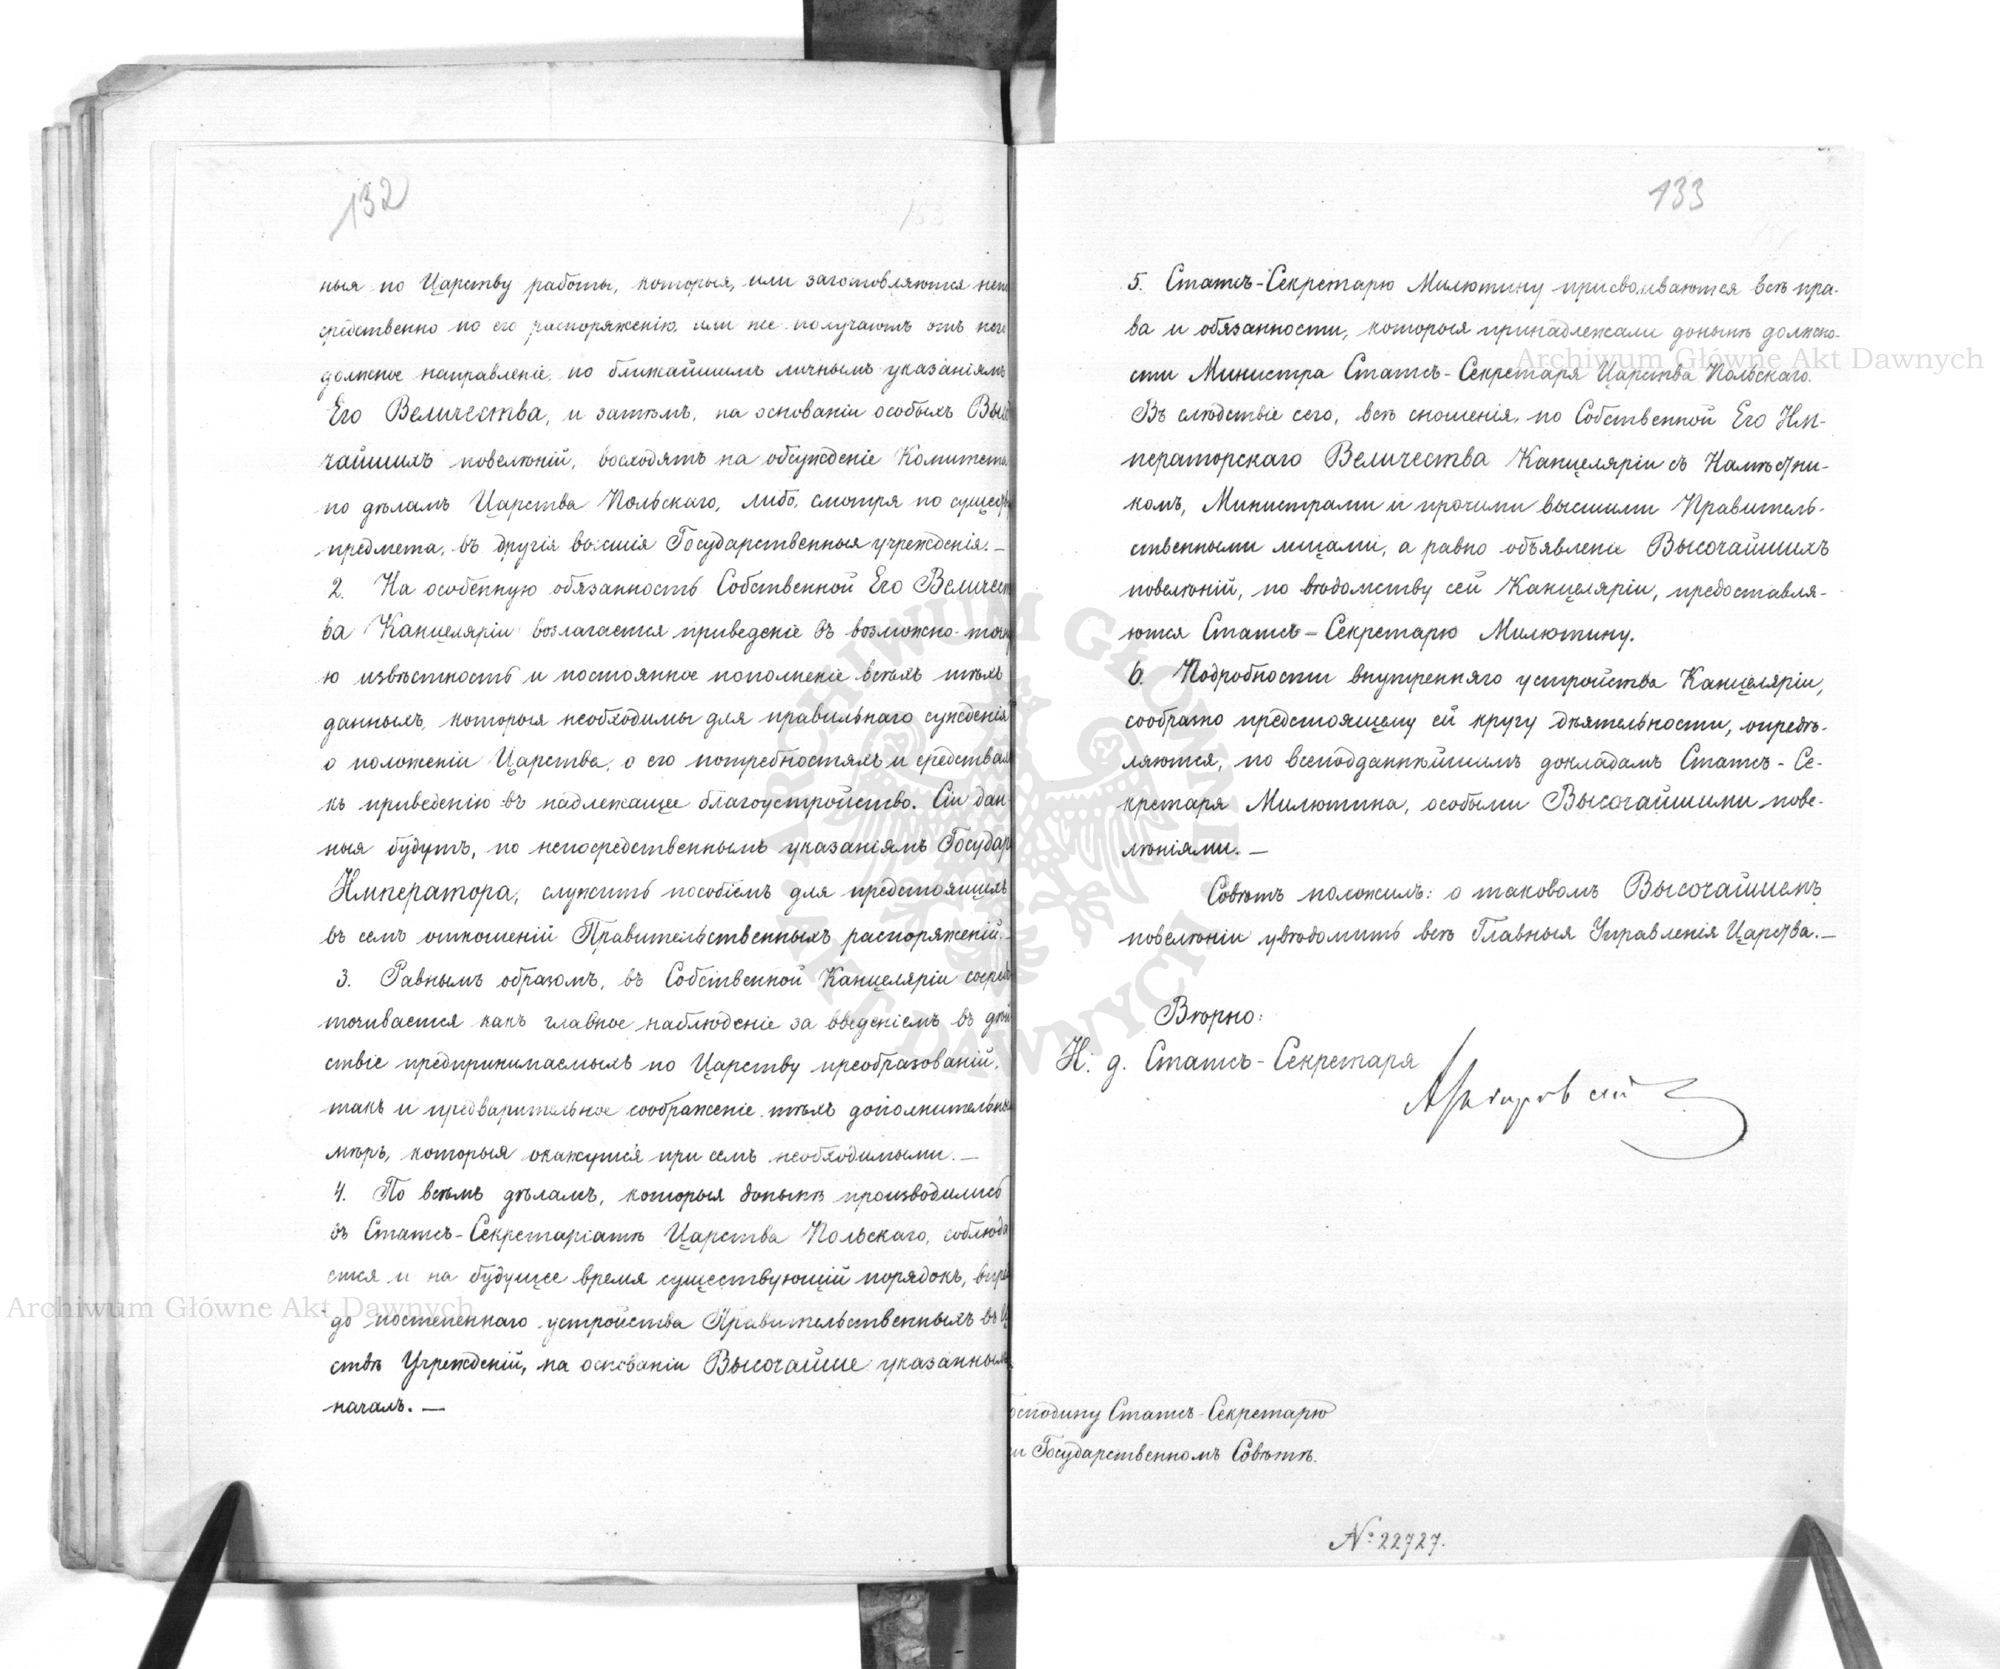 132
ныя по Царству работы, которыя, или заготовляются непо
средственно по его распоряженію, или же получаютъ отъ него
должное направленіе, по ближайшимъ личнымъ указаніямъ
Его Величества, и затѣмъ, на основаніи особыхъ Высо
чайшихъ повелѣній, восходятъ на обсужденіе Комитета
по дѣламъ Царства Польскаго, либо, смотря по существу
предмета, въ другія высшія Государственныя учрежденія. —
2. На особенную обязанность Собственной Его Величест
ва Канцеляріи возлагается приведеніе въ возможно-точну
ю извѣстность и постоянное пополненіе всѣхъ тѣхъ
данныхъ, которыя необходимы для правильнаго сужденія
о положеніи Царства, о его потребностяхъ и средствахъ
къ приведенію въ надлежащее благоустройство. Сіи дан
ныя будутъ, по непосредственнымъ указаніямъ Государ
Императора, служить пособіемъ для предстоящихъ
въ семъ отношеній Правительственныхъ распоряженій. —
3. Равнымъ образомъ, въ Собственной Канцеляріи сосредо
точивается какъ главное наблюденіе за введеніемъ въ дѣй
ствіе предпринимаемыхъ по Царству преобразованій,
такъ и предварительное соображеніе тѣхъ дополнительных
мѣръ, которыя окажутся при семъ необходимыми. —
4. По всѣмъ дѣламъ, которыя донынѣ производились
въ Статсъ-Секретаріатѣ Царства Польскаго, соблюда
ется и на будущее время существующій порядокъ, впре
до постепеннаго устройства Правительственныхъ въ Ц
ствѣ Учрежденій, на основаніи Высочайше указанныхъ
началъ. —
133
5. Статсъ-Секретарю Милютину присвоиваются всѣ пра-
ва и обязанности, которыя принадлежали донынѣ должно-
сти Министра Статсъ-Секретаря Царства Польскаго.
Въ слѣдствіе сего, всѣ сношенія, по Собственной Его Им-
ператорскаго Величества Канцеляріи съ Намѣстни-
комъ, Министрами и прочими высшими Правитель-
ственными лицами, а равно объявленіе Высочайшихъ
повелѣній, по вѣдомству сей Канцеляріи, предоставля-
ются Статсъ-Секретарю Милютину.
6. Подробности внутренняго устройства Канцеляріи,
сообразно предстоящему ей кругу дѣятельности, опредѣ-
ляются, по всеподданнѣйшимъ докладамъ Статсъ-Се-
кретаря Милютина, особыми Высочайшими пове-
лѣніями. —
Совѣтъ положилъ: о таковомъ Высочайшемъ
повелѣніи увѣдомить всѣ Главныя Управленія Царства. —
Вѣрно:
И. д. Статсъ-Секретаря
осподину Статсъ-Секретарю
и Государственномъ Совѣтѣ.
№ 22727.
Archiwum Główne Akt Dawnych
Archiwum Główne Akt Dawnych
ARCHIWUM GŁÓWNE AKT DAWNYCH